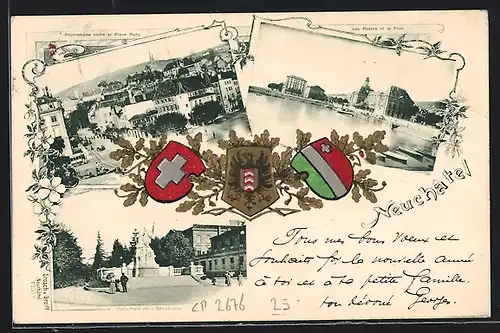 Promenade noire et Place Pury
Les Postes et le Port
Neuchâtel
Monument de la République
Tous mes bons vœux et
souhaits pr. la nouvelle année
à toi et à ta petite famille.
ton dévoué Georges.
CP 2676 25.-